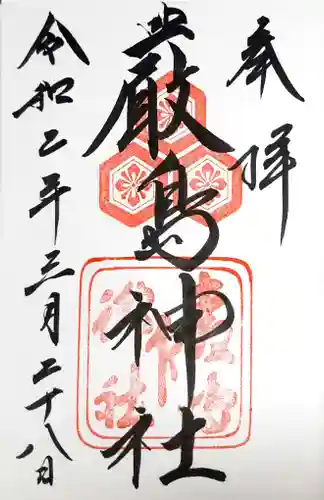 奉拝
嚴島神社
令和二年三月二十八日